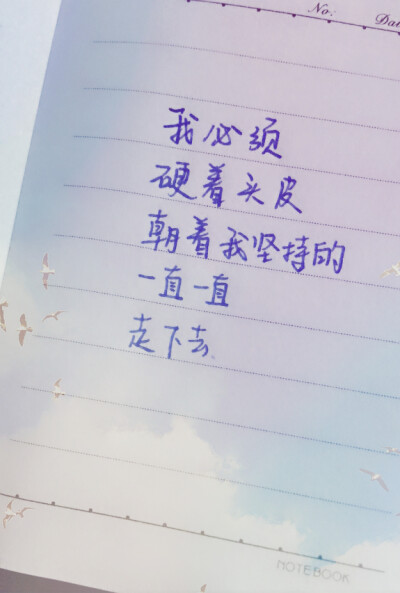 No:
Dat
我必须
硬着头皮
朝着我坚持的
一直一直
走下去.
NOTEBOOK